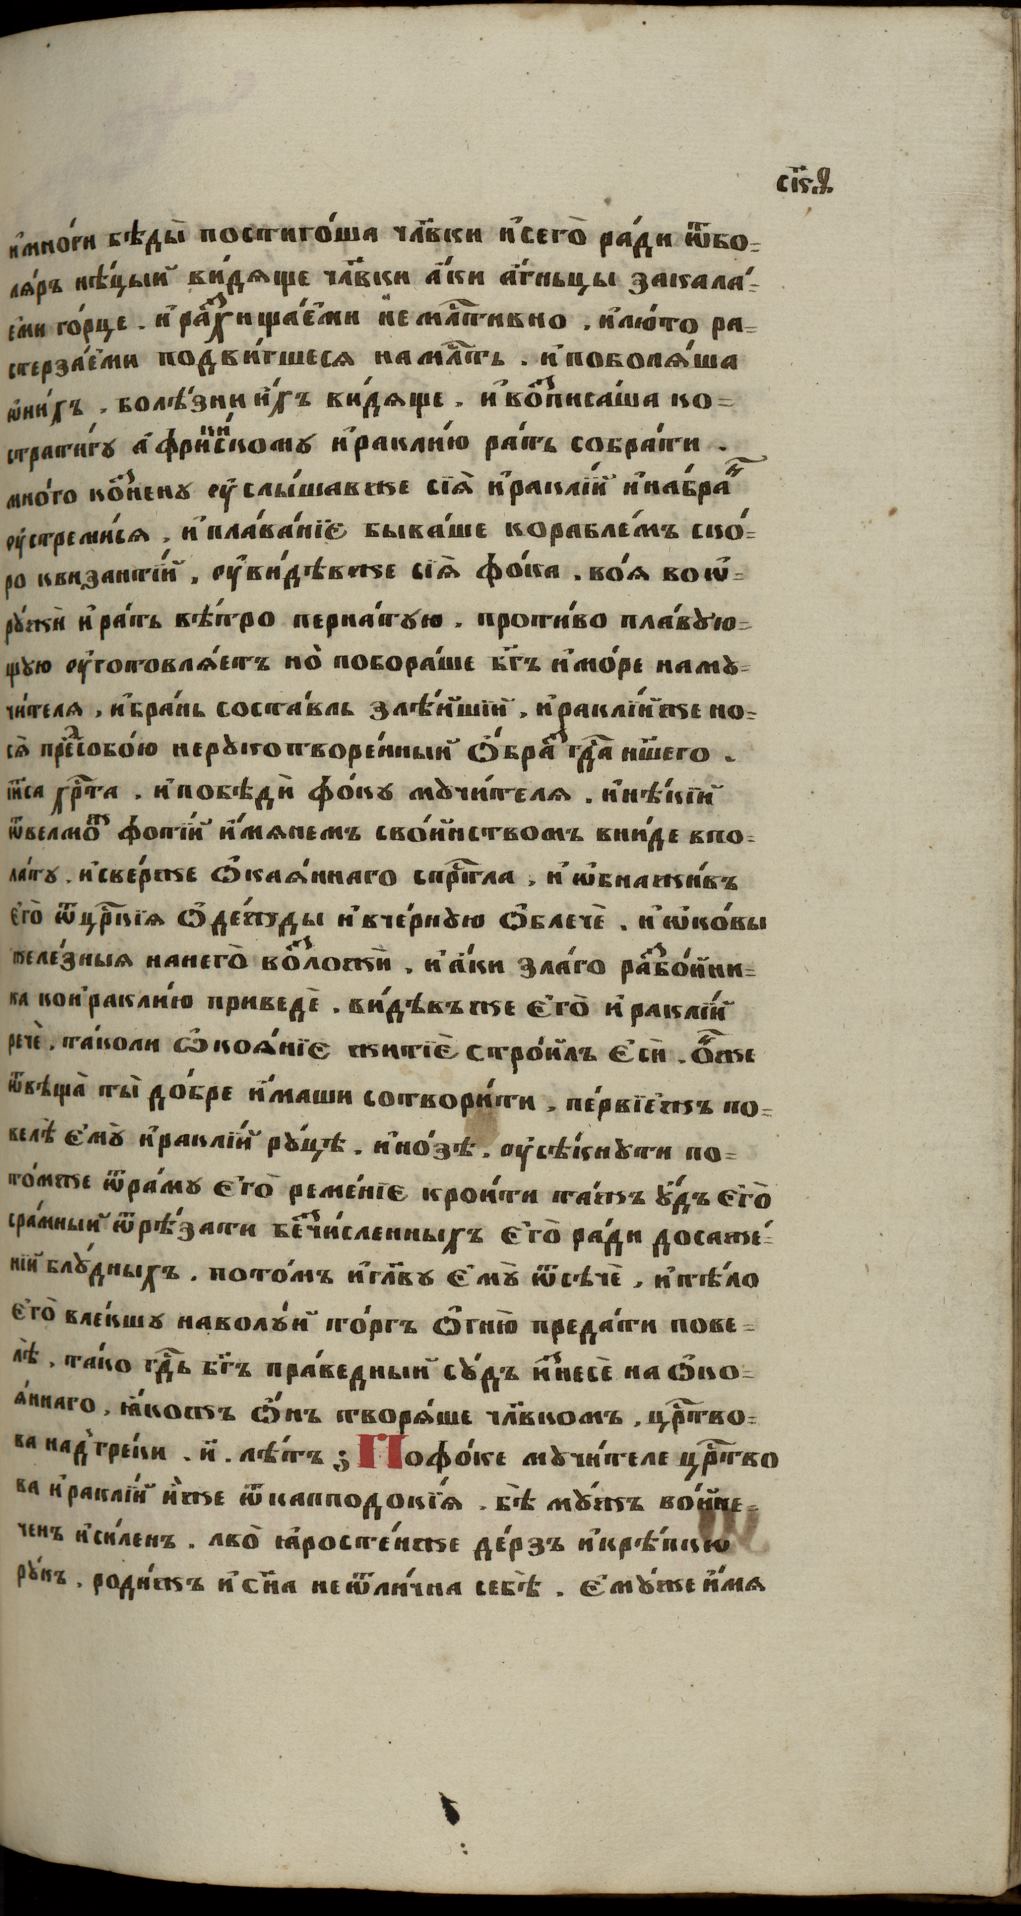 сп҃ѳ
и҆мно́ги бѣды̀ постиго́ша чл҃вки и҆сего̀ ра́ди ѿбо=
ля́ръ нѣ́цыи ви́дяще чл҃вки а҆́ки а҆́гньцы закала́=
еми го́рце . и҆расхища́еми не мл҃стивно . и҆лю́то ра=
стерза́еми подви́гшеся намл҃сть . и҆поболя́ша
ѡ҆ни́хъ . болѣ́зни и҆́хъ ви́дяще . и҆воз̾писа́ша ко=
страти́гу а҆фрики́йскому и҆ракли́ю ра́ть собра́ти .
мно́го ко́ненꙋ оу҆слы́шавже сїѧ̀ и҆ракли́й и҆набра́в
оу҆стреми́ся . и҆пла́ванїе быва́ше корабле́мъ ско́=
ро квизанті́й . оу҆ви́дѣвже сїѧ̀ фо́ка . во́я воѡ҆=
рꙋжѝ и҆ра́ть вѣ́тро перна́тую . проти́во пла́вꙋю=
щую оу҆готовля́етъ но̀ побора́ше бг҃ъ и҆мо́ре намꙋ=
чи́теля . и҆бра́нь соста́вль злѣ́йшїй . и҆ракли́йже но=
ся̀ пре́дсобо́ю нерꙋкотворе́нный ѻ҆́браз гдⷭ҇а нш҃его .
іи҃са хрⷭ҇та . и҆побѣдѝ фо́кꙋ мꙋчи́теля . и҆нѣ́кїй
ѿвелмо́ж фоті́й и҆́мянемъ сво́йнствомъ вни́де впо=
ла́тꙋ . и҆све́рже ѻ҆кая́ннаго спрⷭ҇тла . и҆ѡ҆бнажи́въ
его̀ ѿцрⷭ҇кїя ѻ҆де́жды и҆вче́рнꙋю ѻ҆блечѐ . и҆ѡ҆ко́вы
желе́зныя нанего̀ воз̾ложѝ . и҆а́ки зла́го разбо́йни=
ка кои҆ракли́ю приведѐ . ви́дѣвъже его̀ и҆ракли́й
речѐ . та́коли ѡ҆коя́нїе житїѐ стро́илъ есѝ . ѻ҆́нже
ѿвѣща̀ ты̀ до́бре и҆́маши сотвори́ти . пе́рвїежъ по=
велѣ̀ емꙋ̀ и҆ракли́й рꙋ́цѣ . и҆но́зѣ . оу҆сѣ́кнꙋти по=
то́мже ѿра́мꙋ его̀ реме́нїе крои́ти та́жъ у҆́дъ его̀
сра́мный ѿрѣ́зати безчи́сленныхъ его̀ ра́ди досаже́=
нїй блꙋ́дныхъ . пото́мъ и҆гл҃вꙋ емꙋ̀ ѿсѣчѐ . и҆тѣ́ло
его̀ влеќшꙋ наволꙋ́й то́ргъ ѻ҆гню̀ преда́ти пове=
лѣ̀ . та́ко гдⷭ҇ь бг҃ъ пра́ведный сꙋ́дъ и҆знесѐ на ѻ҆ко=
я́ннаго . ꙗ҆́кожъ ѻ҆́нъ творя́ше чл҃вкомъ . црⷭ҇тво=
ва над̾гре́ки . и҃ . лѣ́тъ ; Пофо́ке мꙋчи́теле црⷭ҇тво
ва и҆ракли́й и҆́же ѿкапподокі́я . бѣ̀ мꙋ́жъ во́йне=
ченъ и҆си́ленъ . лво̀ ꙗ҆росте́нже де́рзъ и҆крѣ́пкѡ
рꙋ́къ . роди́жъ и҆сн҃а неѿли́чна себѣ̀ . емꙋ́же и҆́мя